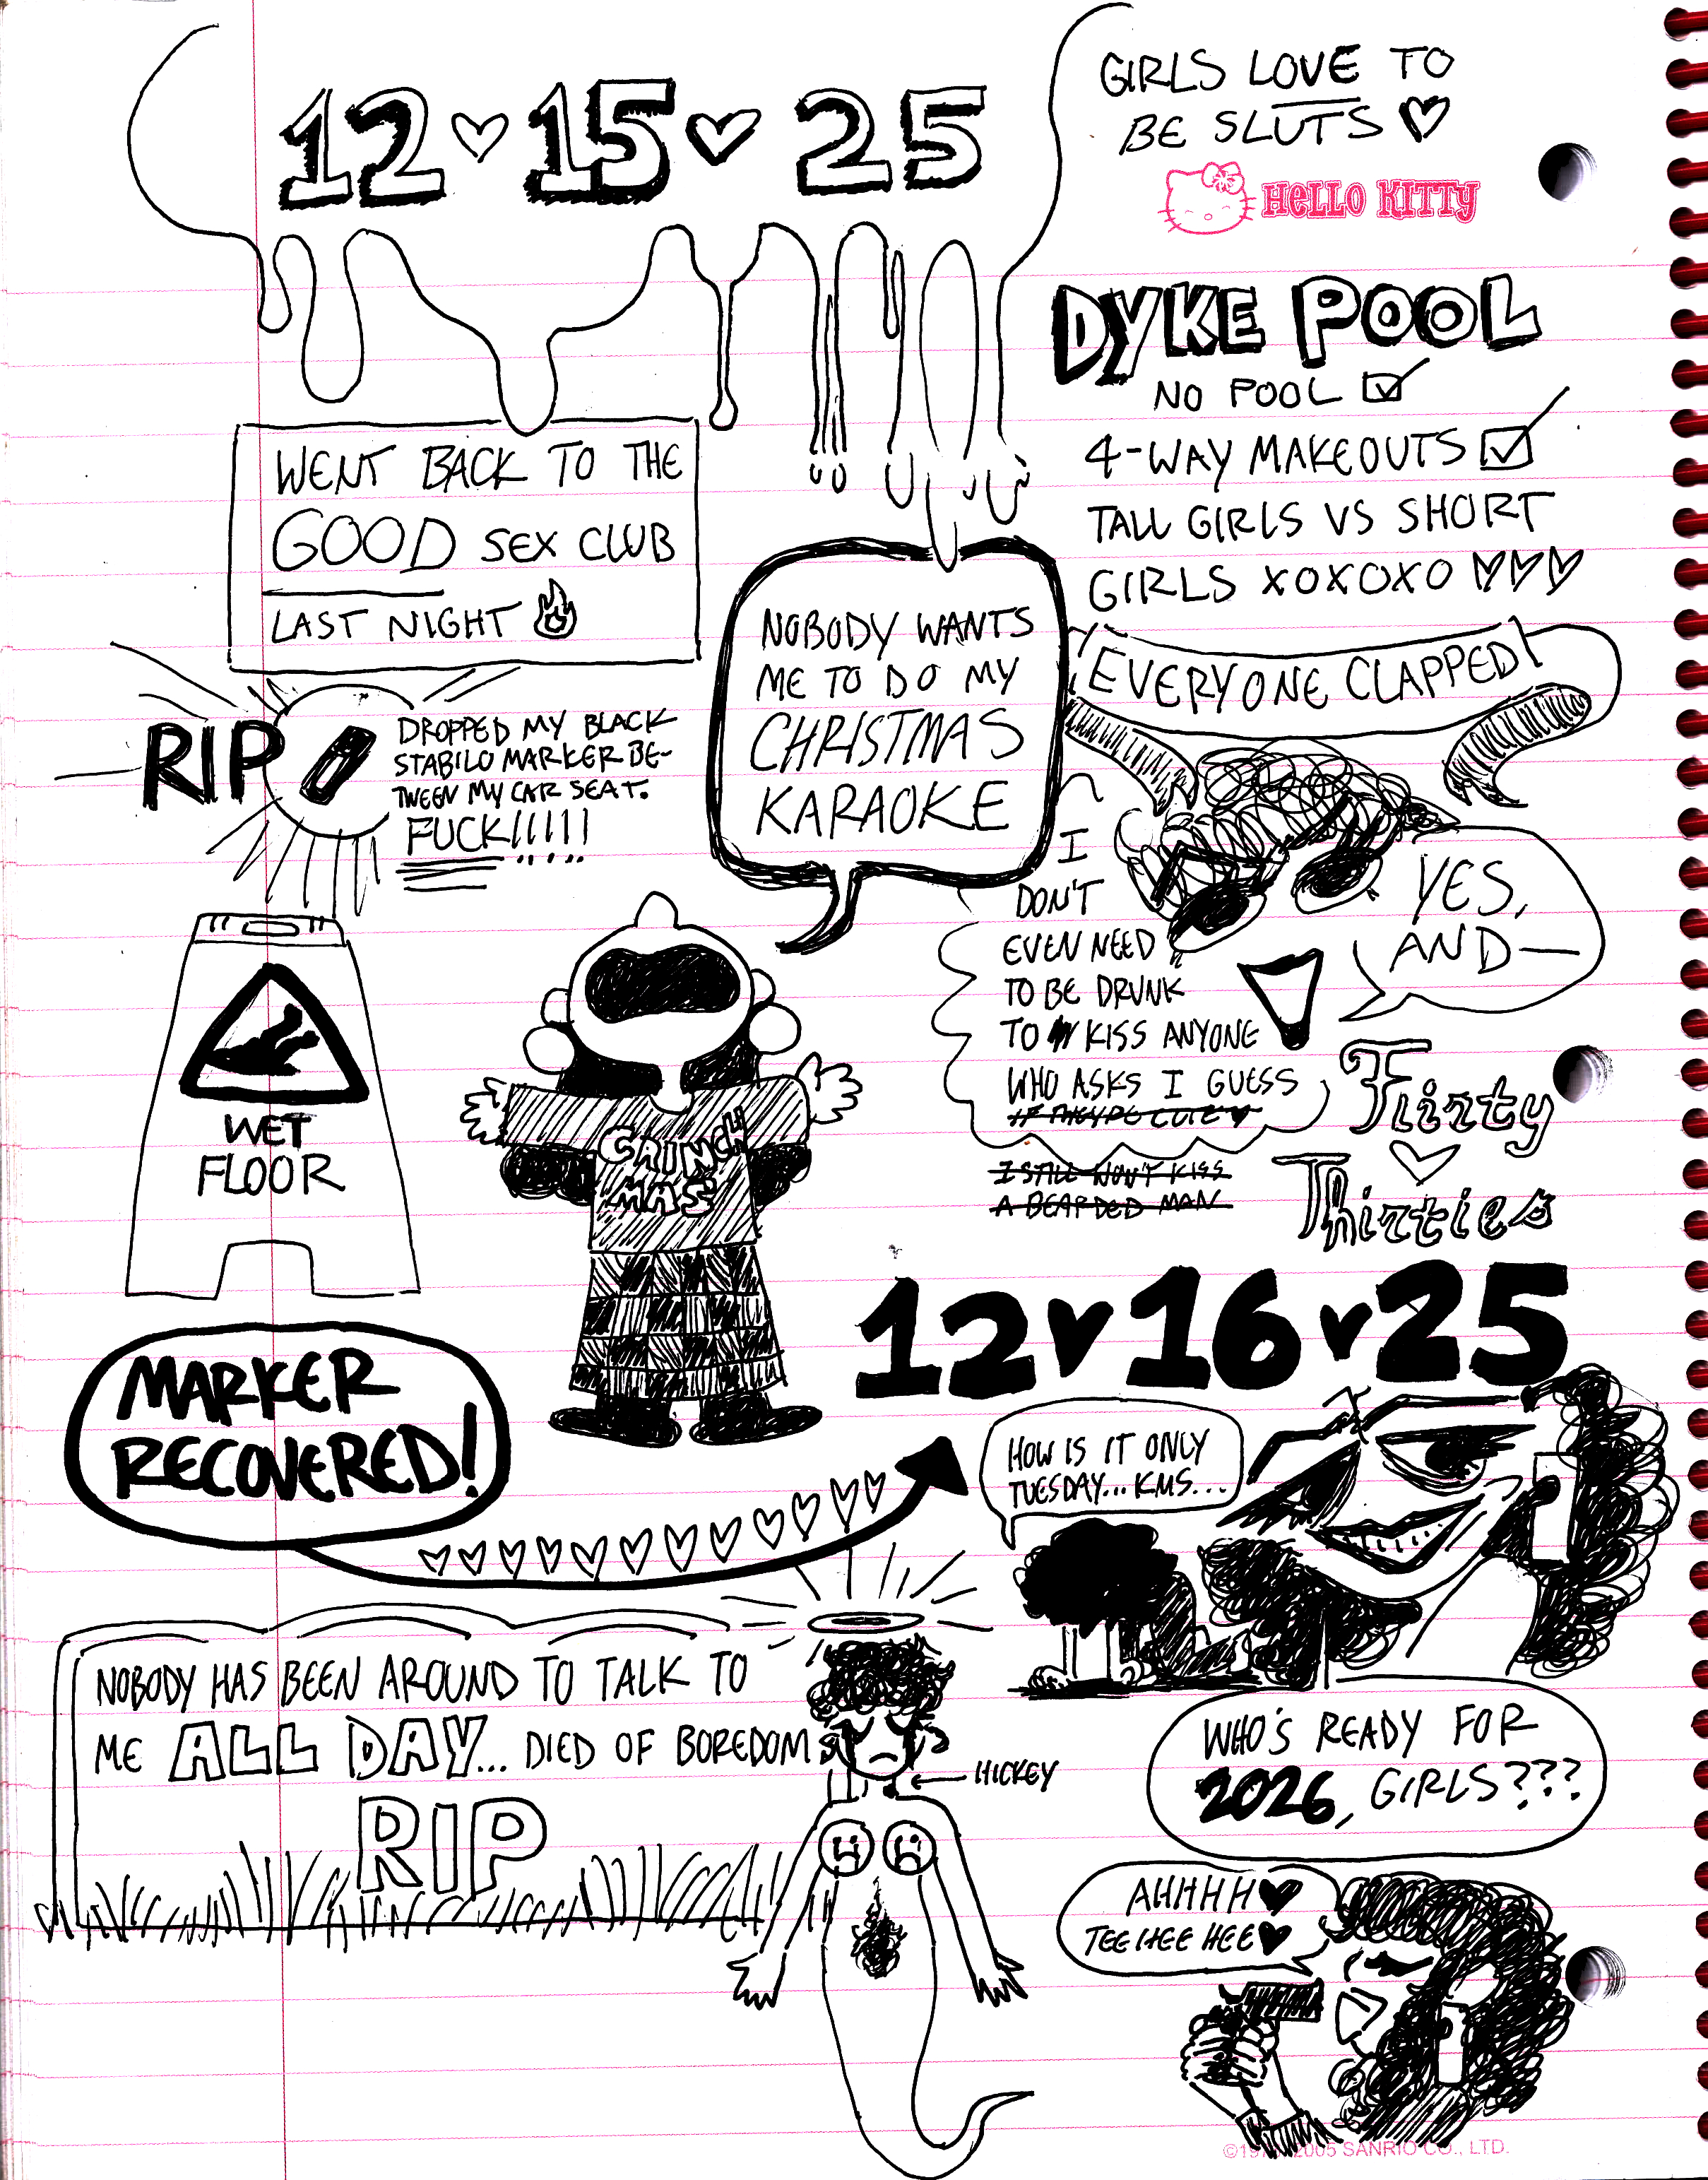 12 ♡ 15 ♡ 25
GIRLS LOVE TO
BE SLUTS ♡
HELLO KITTY
DYKE POOL
NO POOL ☑
4-WAY MAKEOUTS ☑
TALL GIRLS VS SHORT
GIRLS XOXOXO ♡♡♡
EVERYONE CLAPPED!
WENT BACK TO THE
GOOD SEX CLUB
LAST NIGHT
RIP
DROPPED MY BLACK
STABILO MARKER BE-
TWEEN MY CAR SEAT.
FUCK!!!!!
NOBODY WANTS
ME TO DO MY
CHRISTMAS
KARAOKE
I
DON'T
EVEN NEED
TO BE DRUNK
TO KISS ANYONE
WHO ASKS I GUESS
IF THEY'RE CUTE ♥
I STILL WON'T KISS
A BEARDED MAN
YES,
AND—
Flirty
♡
Thirties
WET
FLOOR
CRINCH
MAS
12 ♥ 16 ♥ 25
MARKER
RECOVERED!
HOW IS IT ONLY
TUESDAY...KMS...
NOBODY HAS BEEN AROUND TO TALK TO
ME ALL DAY... DIED OF BOREDOM
RIP
HICKEY
WHO'S READY FOR
2026, GIRLS???
AHHHH ♥
TEE HEE HEE ♥
2005 SANRIO CO., LTD.